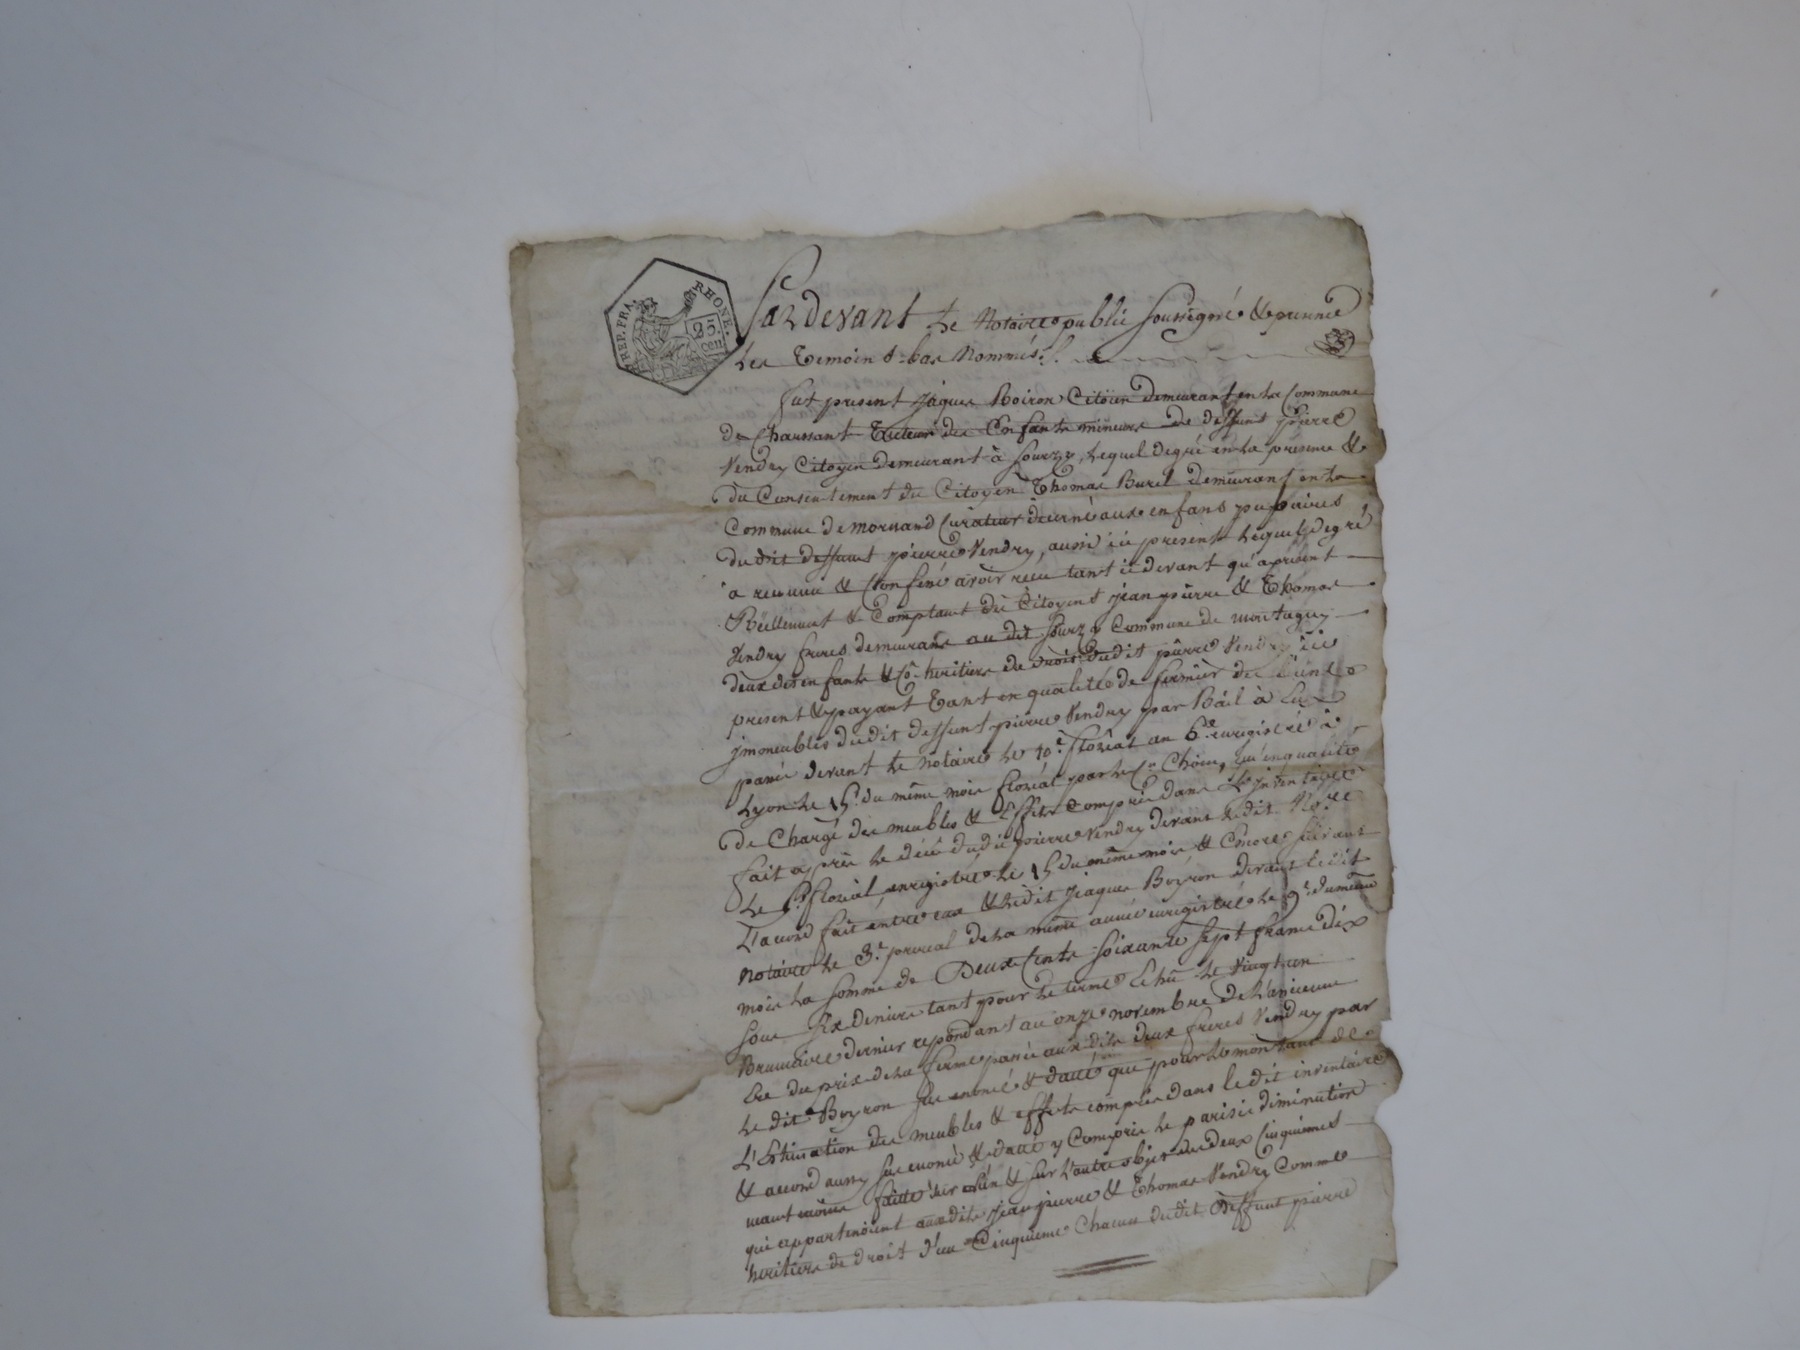 REP. FRA. RHONE.
25. cen
Pardevant Le Notaire public soussigné & en presence
Les Temoins bas Nommés
fut present Jâques Boiron Citöien demeurant en La Commune
de Chaussant Tuteur des Enfants mineurs de deffunt pierre
Vendry Citoyen demeurant à Sourzy, Lequel de gré en La présence &
du Consentement du Citoyen Thomas Burel demeurant en La
Commune de mornand Curateur décerné aux enfans pupaires
du dit deffunt pierre Vendry, aussi ici present Lequel de gré
a reconnu & Confessé avoir recu tant ci devant qu'aprésent
Réellement & Comptant des Citoyens jean pierre & Thomas
Vendry freres demeurans au dit Sourzy Commune de montagny
deux des enfants & Co-heritiers de droit du dit pierre Vendry ici
present & payant Tant en qualité de fermier des
jmmeubles du dit deffunt pierre Vendry par Bail à Eux
passé devant Le notaire le 10.e floréal an 6.e enregistré à
Lyon Le 15. du même mois floréal par le C.n qu'en qualité
de Chargé des meubles & Effets Compris dans L'jnventaire
fait après Le décés du dit pierre Vendry devant Le dit No.re
Le floréal enregistré Le 15 du même mois, & Encore suivant
L'acord fait entre eux & Le dit Jâques Boyron devant Le dit
notaire Le 3.e prereal de La même année enregistré Le 9.e du même
mois La somme de Deux Cents soixante sept francs dix
sous six deniers tant pour Le terme Echû Le Vingt un
Brumaire dernier repondant au onze novembre de L'ancienne
Ere du prix de La ferme passée aux dits deux freres Vendry par
Le dit Boyron sus enoncé & datté que pour Le montant de
L'Estimation des meubles & effets compris dans Le dit inventaire
& accord aussy sus enoncé & datté y Compris Le parisis diminution
neantmoins faitte sur L'un & sur L'autre objet des deux Cinquiemes
qui appartenoient aux dits Jean pierre & Thomas Vendry Comme
heritiers de droit d'un Cinquieme Chacun du dit deffunt pierre